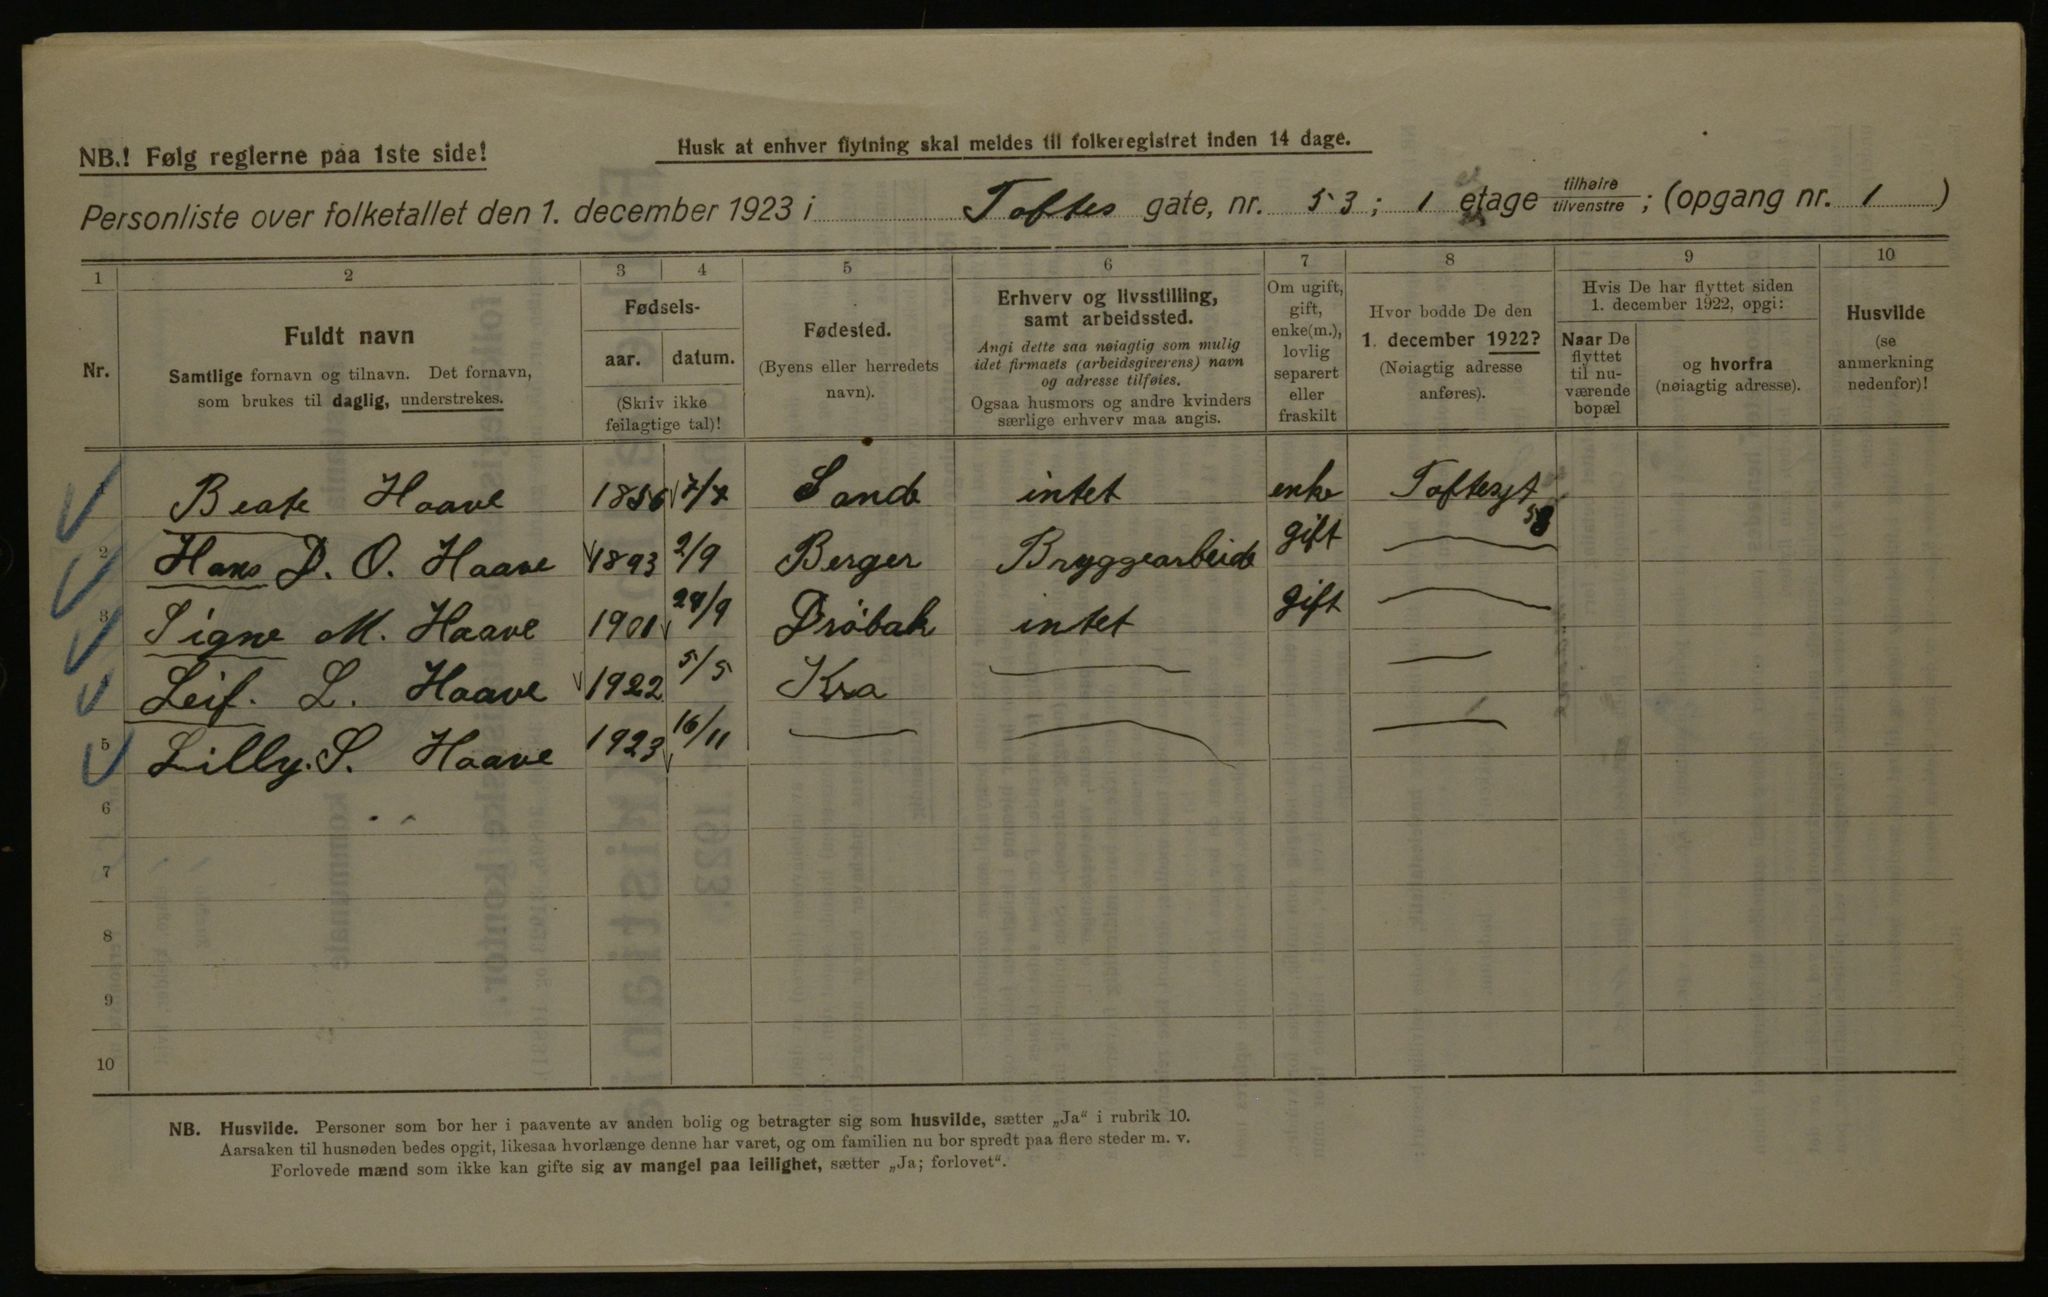 NB.! Følg reglerne paa 1ste side!
Husk at enhver flytning skal meldes til folkeregistret inden 14 dage.
Personliste over folketallet den 1. december 1923 i Toftes gate, nr. 53; 1 etage tilhøire tilvenstre ; (opgang nr. 1 )
1 2 3 4 5 6 7 8 9 10
Nr.
Fuldt navn
Samtlige fornavn og tilnavn. Det fornavn,
som brukes til daglig, understrekes.
Fødsels-
aar. datum.
(Skriv ikke
feilagtige tal)!
Fødested.
(Byens eller herredets
navn).
Erhverv og livsstilling,
samt arbeidssted.
Angi dette saa nøiagtig som mulig
idet firmaets (arbeidsgiverens) navn
og adresse tilføies.
Ogsaa husmors og andre kvinders
særlige erhverv maa angis.
Om ugift,
gift,
enke(m.),
lovlig
separert
eller
fraskilt
Hvor bodde De den
1. december 1922?
(Nøiagtig adresse
anføres).
Hvis De har flyttet siden
1. december 1922, opgi:
Naar De
flyttet
til nu-
værende
bopæl
og hvorfra
(nøiagtig adresse).
Husvilde
(se
anmerkning
nedenfor)!
Beate Haave 1856 7/7 Sande intet enke Toftesgt 53
2 Hans D. O. Haave 1893 2/9 Berger Bryggearbeide gift
3 Signe M. Haave 1901 29/9 Drøbak intet gift
Leif. L. Haave 1922 5/5 Kra
5 Lilly. S. Haave 1923 16/11
6
7
8
9
10
NB. Husvilde. Personer som bor her i paavente av anden bolig og betragter sig som husvilde, sætter „Ja“ i rubrik 10.
Aarsaken til husnøden bedes opgit, likesaa hvorlænge denne har varet, og om familien nu bor spredt paa flere steder m. v.
Forlovede mænd som ikke kan gifte sig av mangel paa leilighet, sætter „Ja; forlovet“.